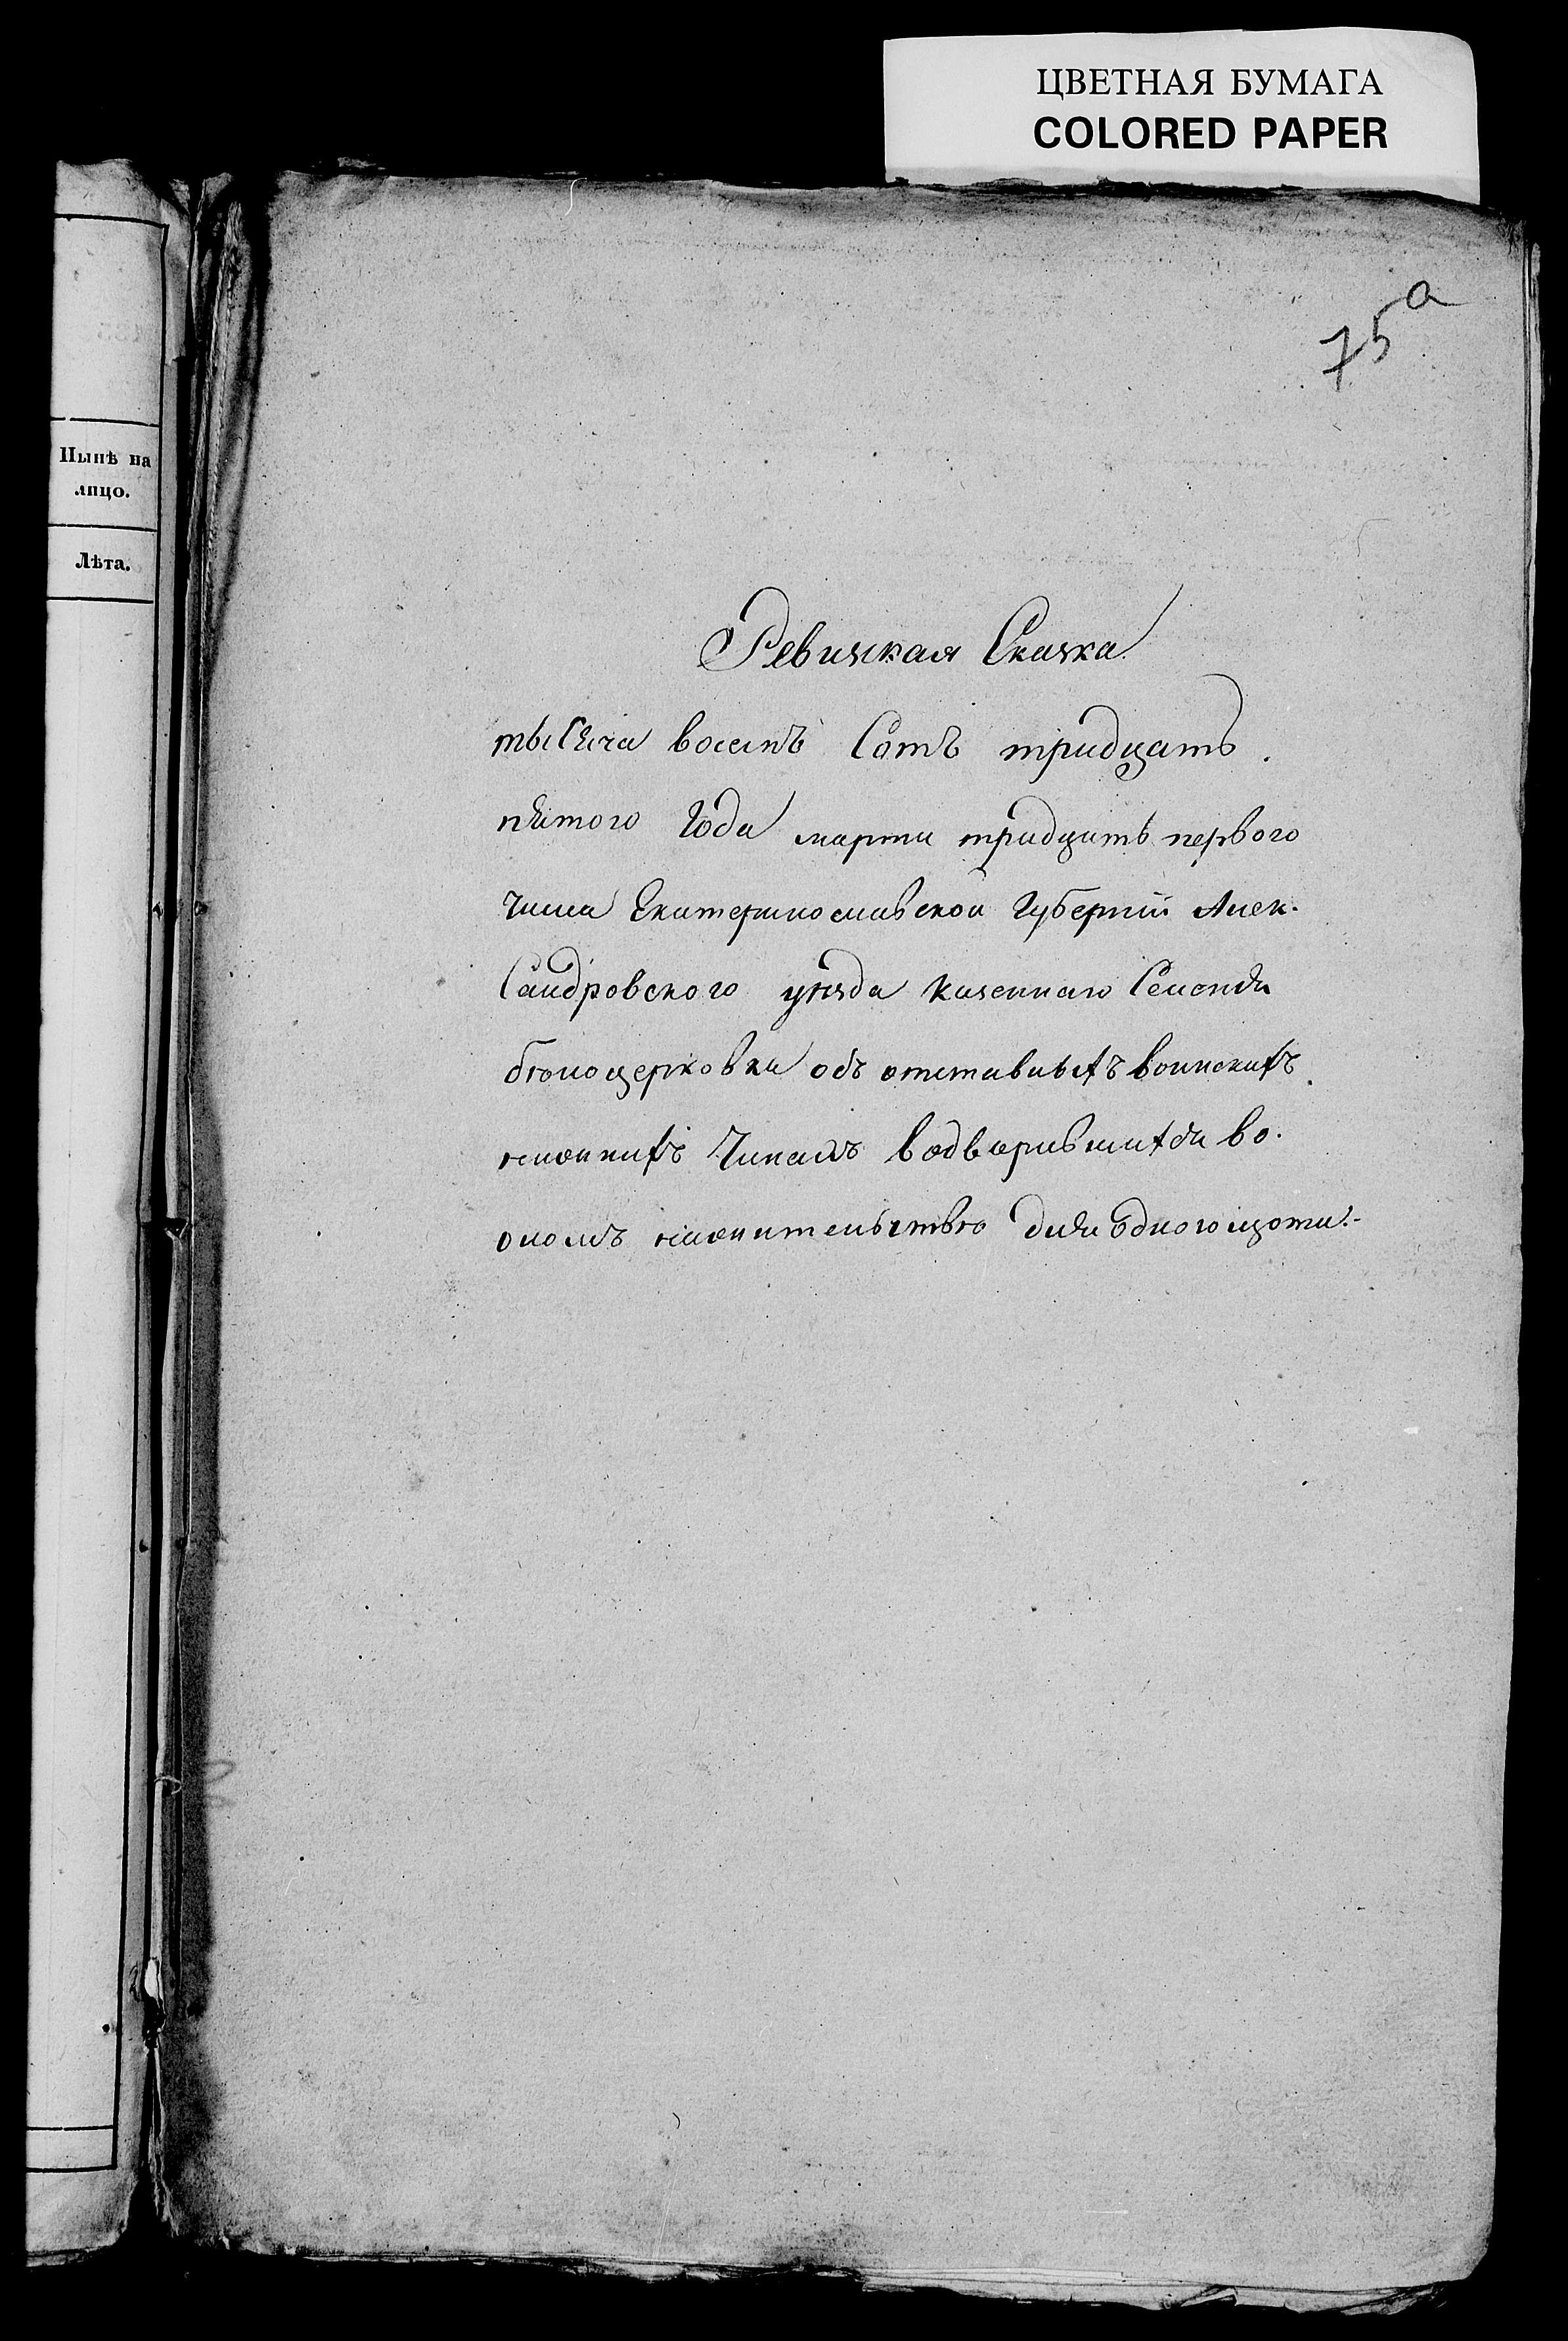 ЦВЕТНАЯ БУМАГА
COLORED PAPER
75а
Нынѣ на
лицо.
Лѣта.
Ревизкая Сказка
тысяча восемъ Сотъ тридцать
пятого Года марта тридцать первого
числа Екатеринославской Губерніи Алек-
Сандровского уѣзда казеннаго Селенія
бѣлоцерковки объ отставныхъ воинскихъ
нижнихъ Чинахъ водворившихся во
ономъ жительствѣ для одного щота.-